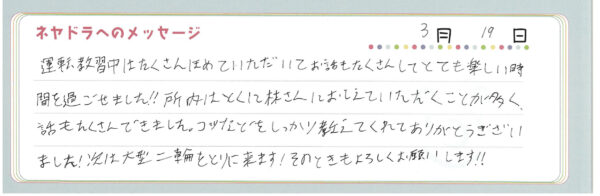 ネヤドラへのメッセージ
3月 19日
運転教習中はたくさんほめていただいてお話もたくさんしてとても楽しい時
間を過ごせました!!所内はとくに林さんにおしえていただくことが多く、
話もたくさんできました。コツなどをしっかり教えてくれてありがとうござい
ました!次は大型二輪をとりに来ます!そのときもよろしくお願いします!!